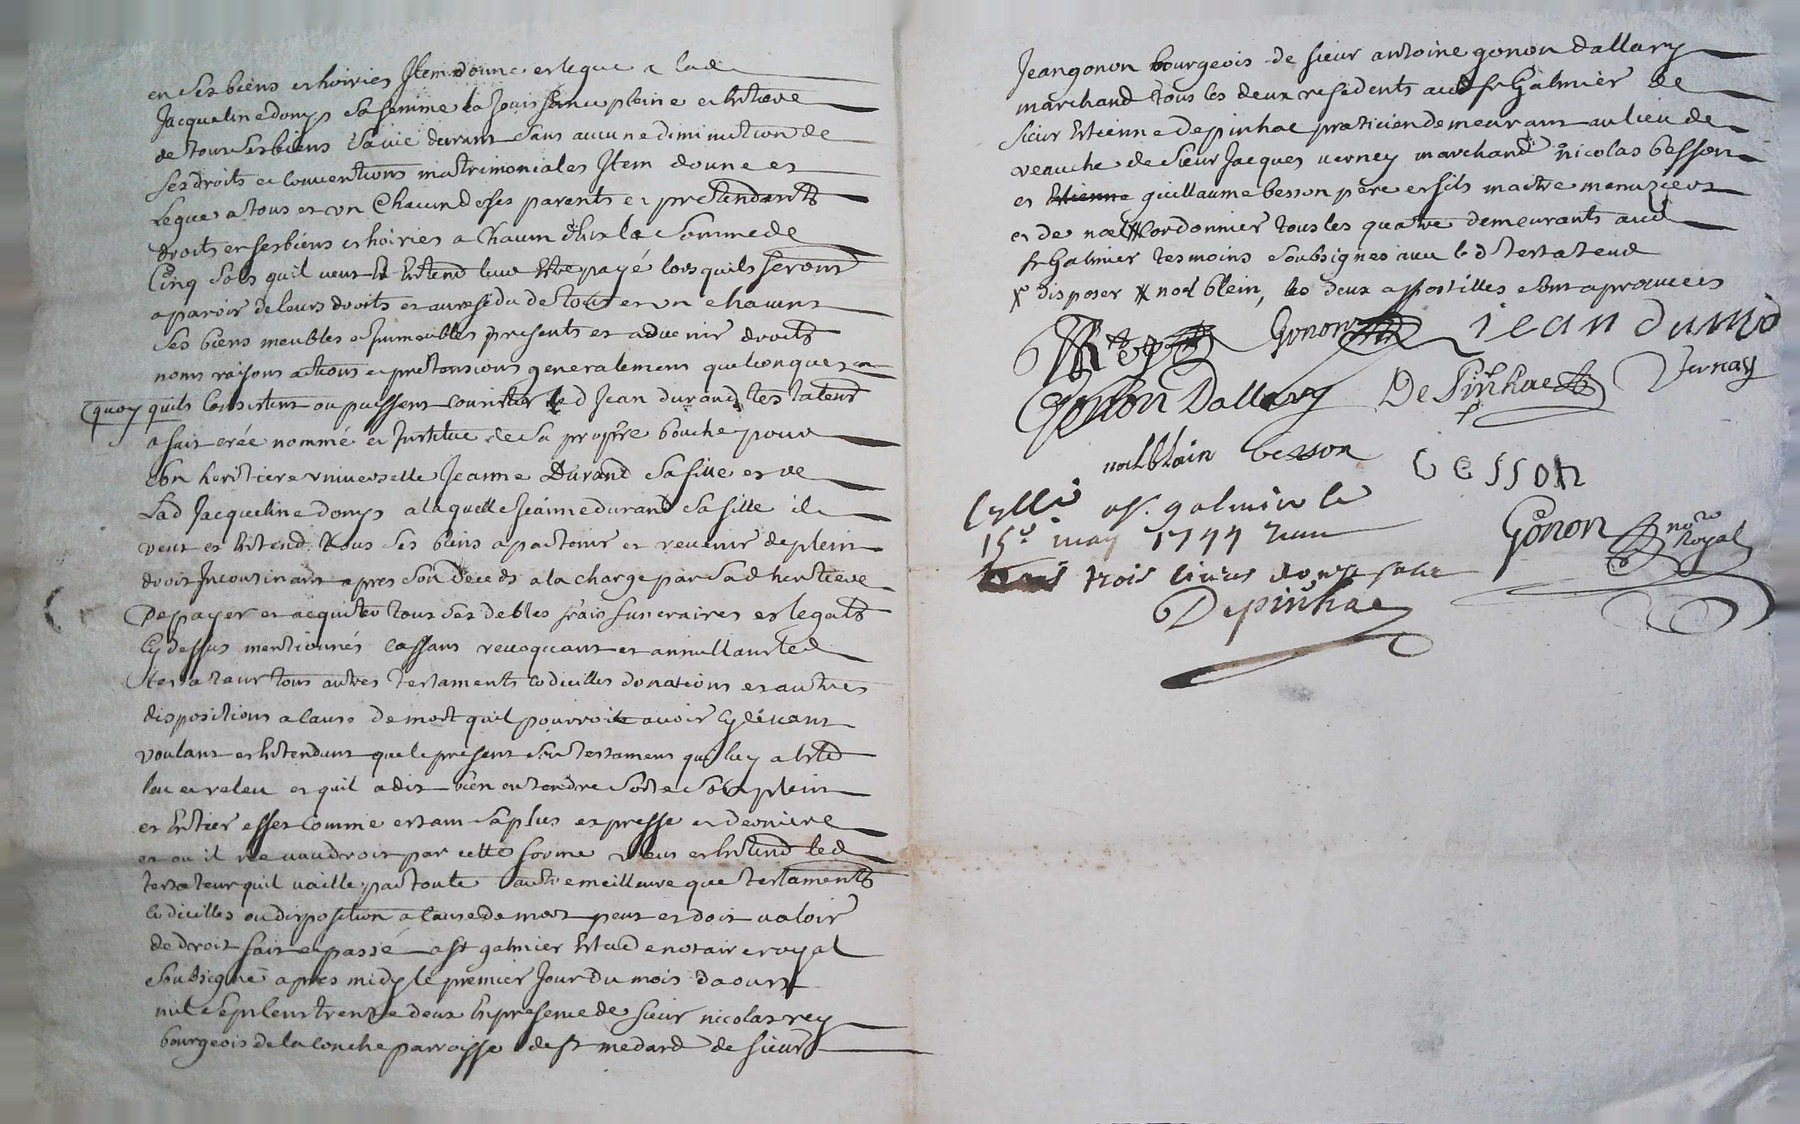 en ses biens et hoiries Item donne et legue a lad
Jacqueline donys sa femme la Jouissance pleine et Entiere
de tous ses biens sa vie durant sans aucune diminution de
ses droits et conventions matrimoniales Item donne et
legue a tous et un Chacun de ses parents et pretendants
droits en ses biens et hoiries a Chacun d'eux la somme de
Cinq sols quil veut et Entend leur Etre payé lors quils seront
aparoir de leurs droits et au residu de tous et un chacuns
ses biens meubles et Immeubles presents et advenir droits
noms raisons actions et pretensions generalement quelconques en
quoy quils Consistent ou puissent consister led Jean durand testateur
a fait crée nommé et Institue de sa propre bouche pour
son heritiere universelle Jeanne Durand sa fille et de
Lad Jacqueline donys a laquelle Jeanne durand sa fille il
veut et Entend tous ses biens apartenir et revenir de plein
droit Incontinant apres son deceds a la charge par sad heritiere
De payer et acquiter tous ses debtes frais funeraires et legats
Cy dessus mentionnés cassant revoquant et annullant led
testateur tous autres testaments codicilles donations et autres
dispositions a cause de mort quil pourroit avoir Cy devant
voulant et Entendant que le present son testament qui luy a Eté
leu et releu et quil a dit bien entendre sorte son plein
et Entier effet comme etant sa plus expresse et derniere
et ou il ne vaudroit par cette forme veut et Entend led
testateur quil vaille par toute autre meilleure que testaments
codicilles ou disposition a cause de mort peut et doit valoir
de droit fait et passé a st galmier Etude notaire royal
soubsigné apres midy le premier Jour du mois daoust
mil sept cens trente deux En presence de sieur nicolas rey
bourgeois de la conche parroisse de st medard de sieur
Jean gonon bourgeois de sieur antoine gonon dallary
marchand tous les deux residents aud st Galmier de
sieur Etienne Depinhac praticien demeurant au lieu de
veauche de sieur Jacques verney marchand nicolas besson
et Etienne guillaume besson pere et fils maitre menuziers
et de noel # Cordonnier tous les quatre demeurants aud
st Galmier tesmoins soubsignes avec led testateur
disposer # noel blein, les deux apostilles sont aprouvees
Rey Gonon jean durand
Gonon Dallary De Pinhac Vernay
noel blain besson besson
Cellé a st galmier le
15e may 1744
trois livres douze sols
Depinhac
Gonon nore Royal